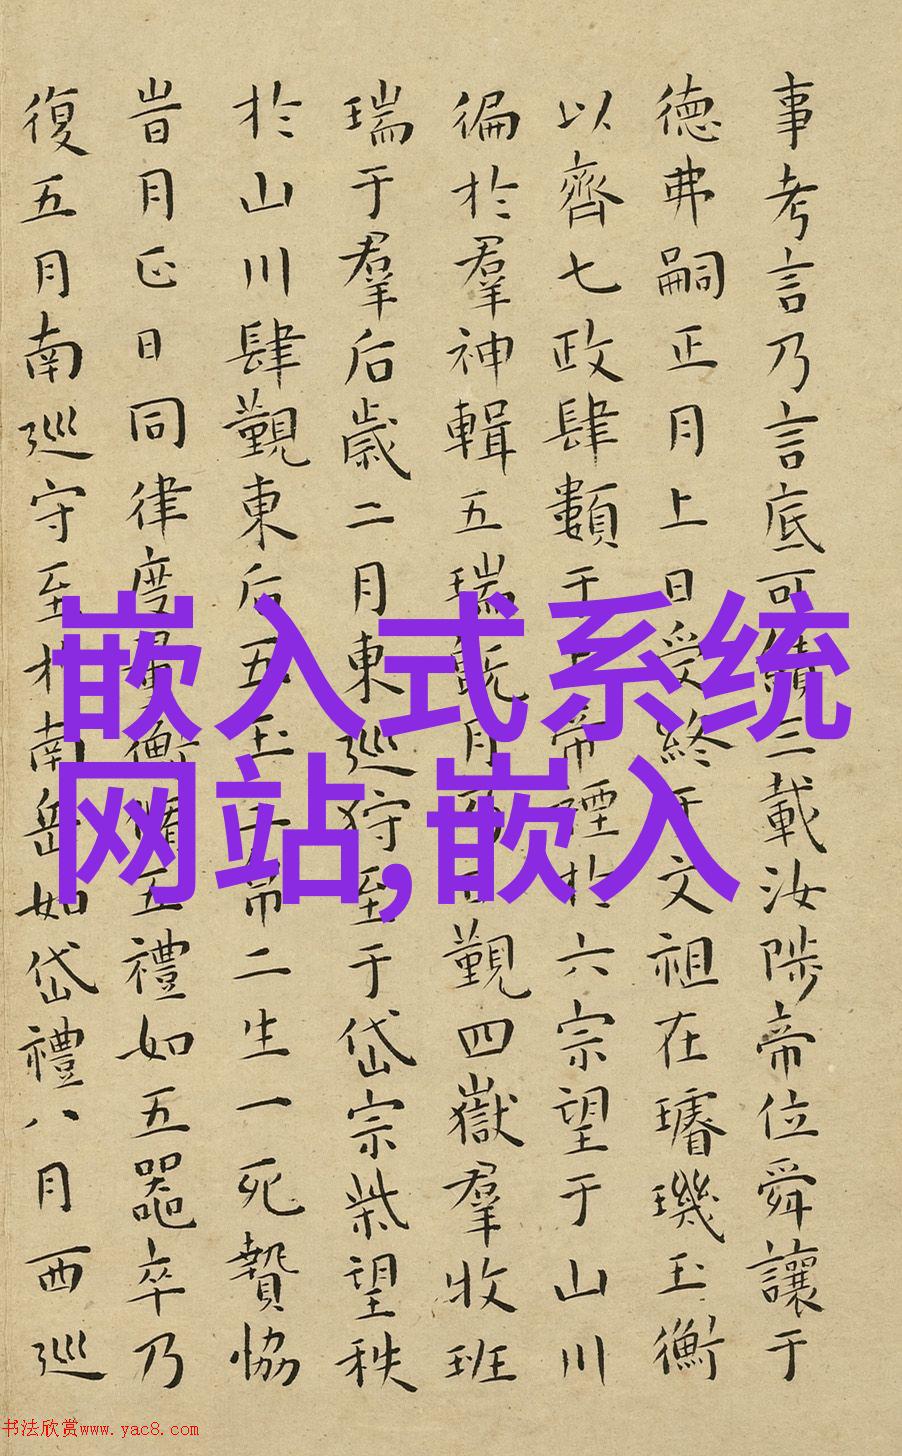 事考言乃言底可績三載汝陟帝位舜讓于
德弗嗣正月上日受終于文祖在璿璣玉衡
以齊七政肆類于上帝禋於六宗望于山川
徧於羣神輯五瑞既月乃日覲四嶽羣牧班
瑞于羣后歲二月東巡狩至于岱宗柴望秩
於山川肆覲東后五玉三帛二生一死贄協
旹月正日同律度量衡脩五禮如五器卒乃
復五月南巡守至於南岳如岱禮八月西巡
嵌入式系统
网站,嵌入
书法欣赏www.yac8.com